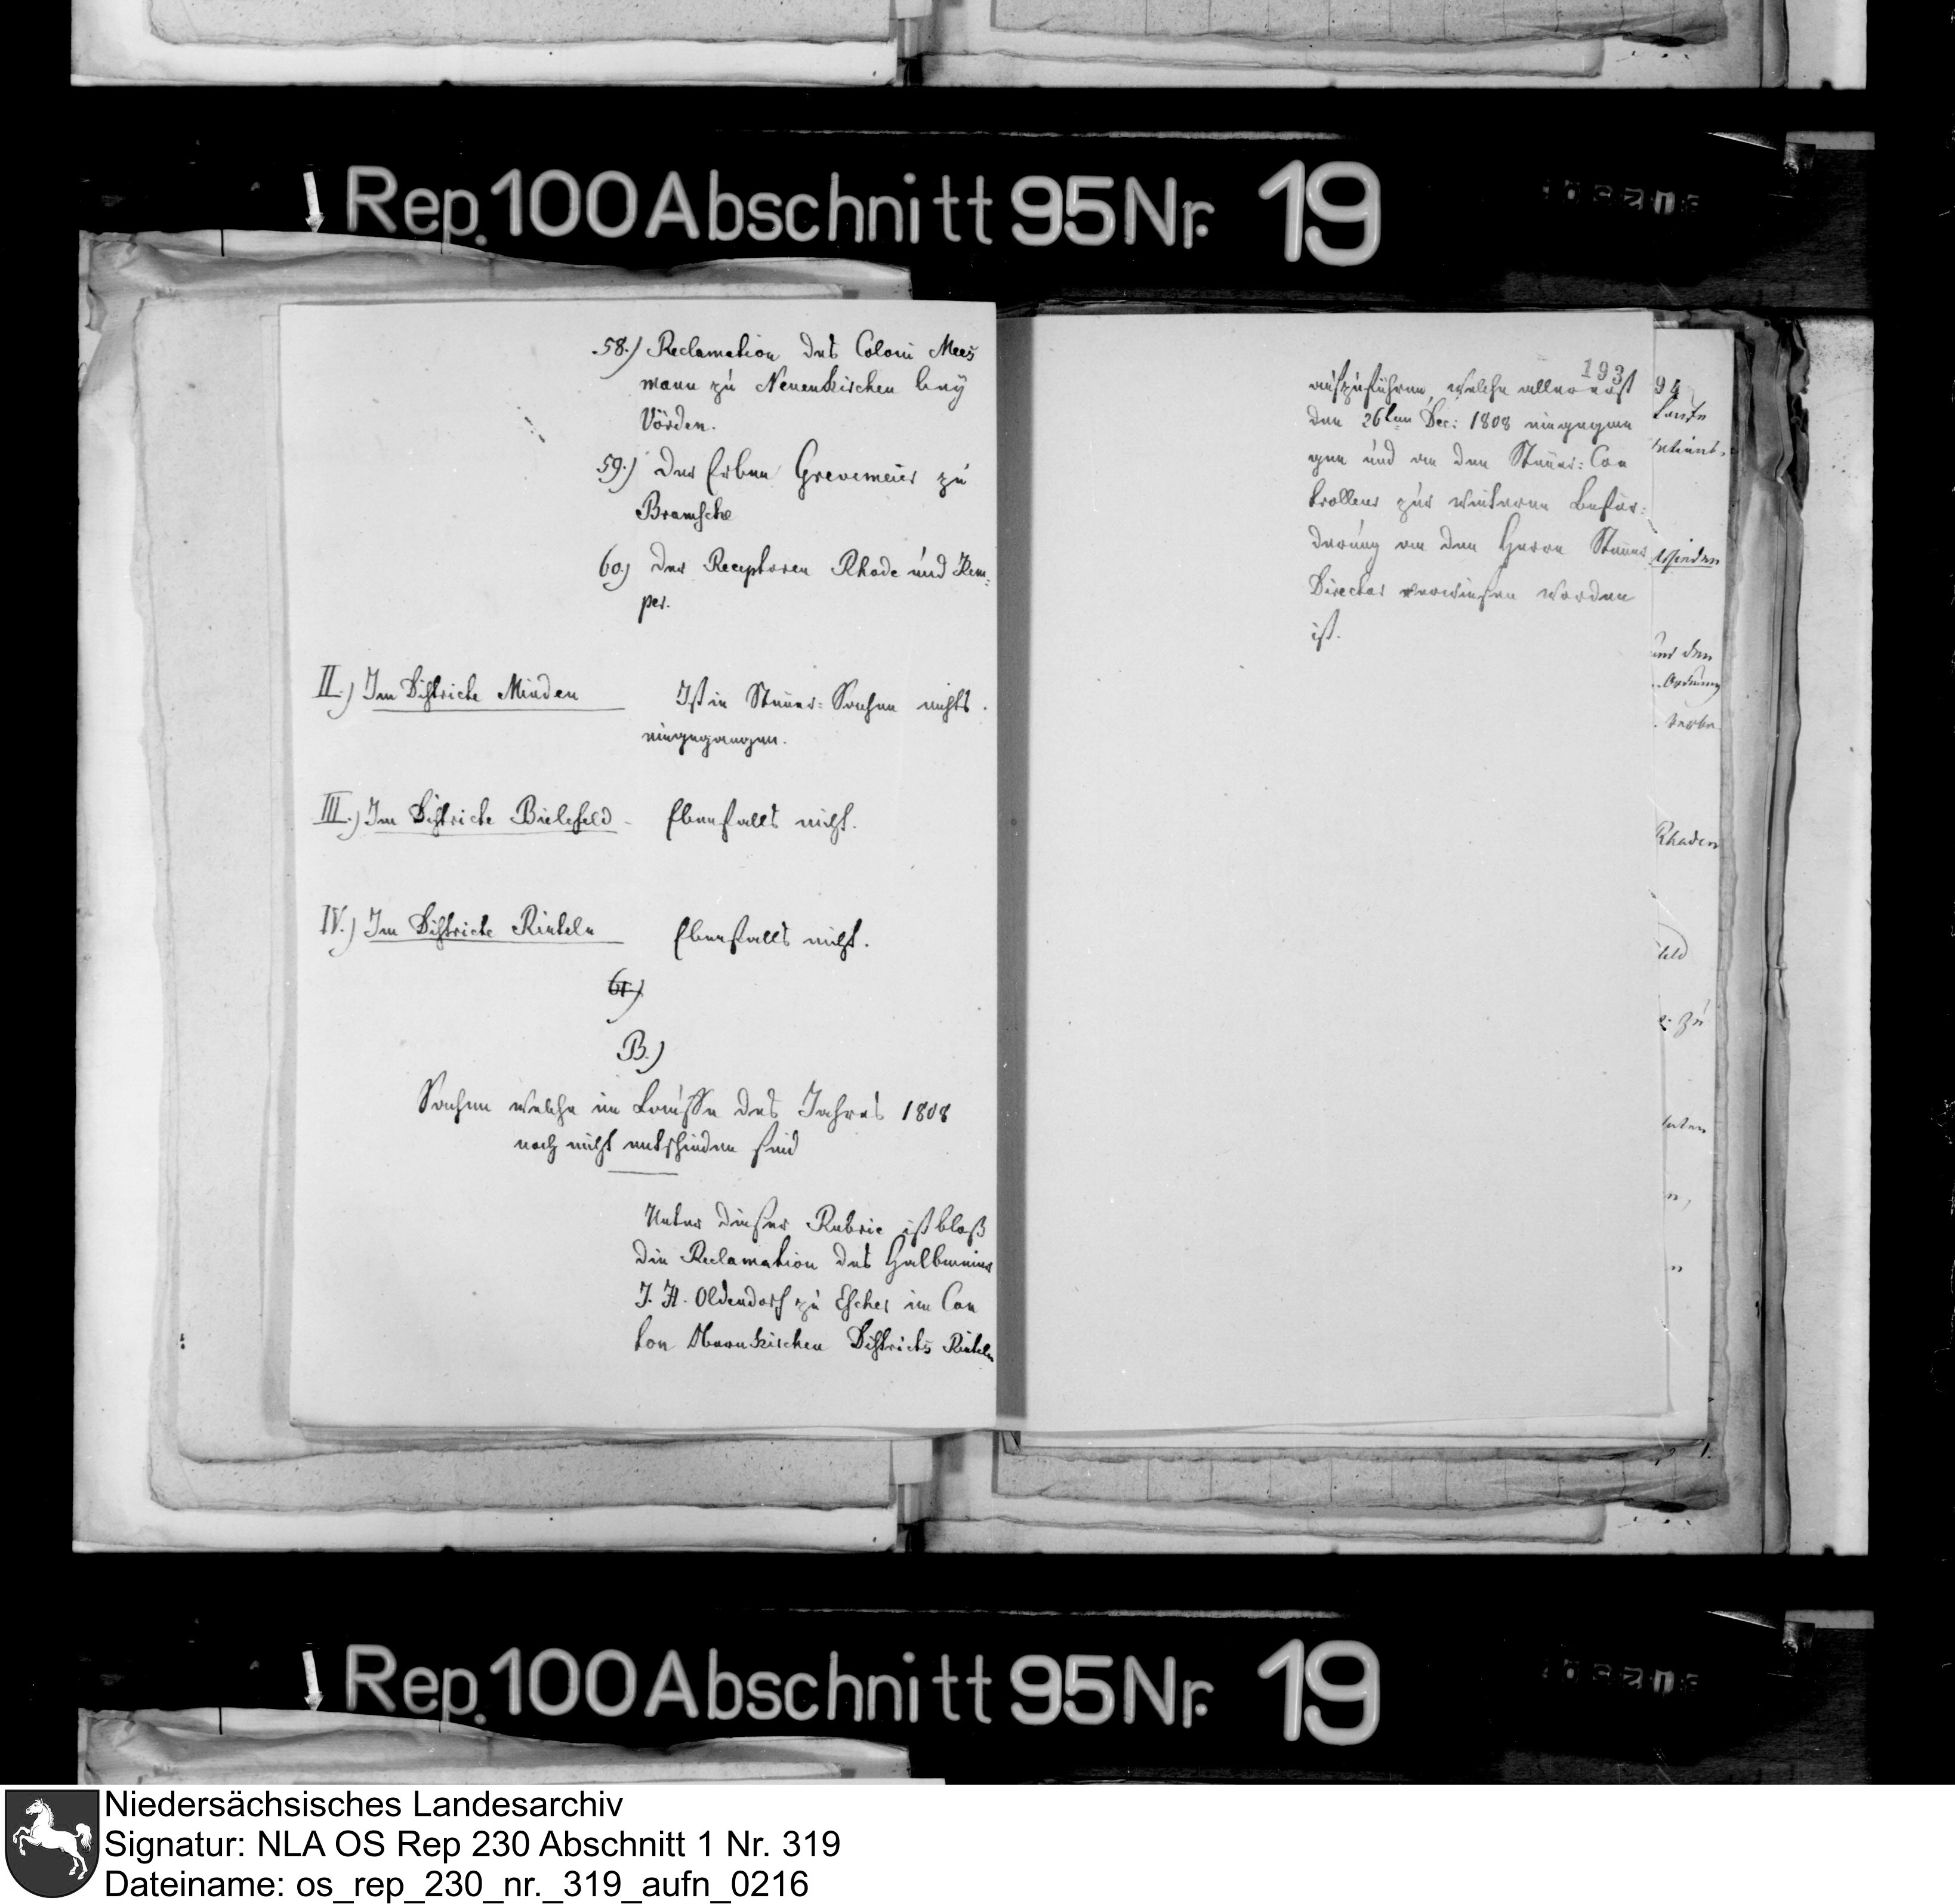 Rep. 100 Abschnitt 95 Nr. 19
58.) Reclamation des Coloni Mees
mann zu Neuenkirchen bey
Vörden.
59.) Der Erben Grevemeier zu
Bramsche
60.) Der Receptoren Rhode und Kem-
per.
II.) Im Districte Minden
Ist in Steuer-Sachen nichts
eingegangen.
III.) Im Districte Bielefeld
Ebenfalls nicht.
IV.) Im Districte Rinteln
Ebenfalls nicht.
61.)
B.)
Sachen welche im Lauffe des Jahres 1808
noch nicht entschieden sind
Unter dieser Rubric ist bloß
die Reclamation des Halbmeier
J. H. Oldendorf zu Escher im Can
ton Obernkirchen Districts Rinteln
193
aufzuführen, welche allererst
den 26ten Dec: 1808 eingegan
gen und an den Steuer-Con
trolleur zur weiteren Beför-
derung an den Herrn Steuer
Director verwiesen worden
ist.
94
und den
Rhaden
feld
zu
Rep. 100 Abschnitt 95 Nr. 19
Niedersächsisches Landesarchiv
Signatur: NLA OS Rep 230 Abschnitt 1 Nr. 319
Dateiname: os_rep_230_nr._319_aufn_0216